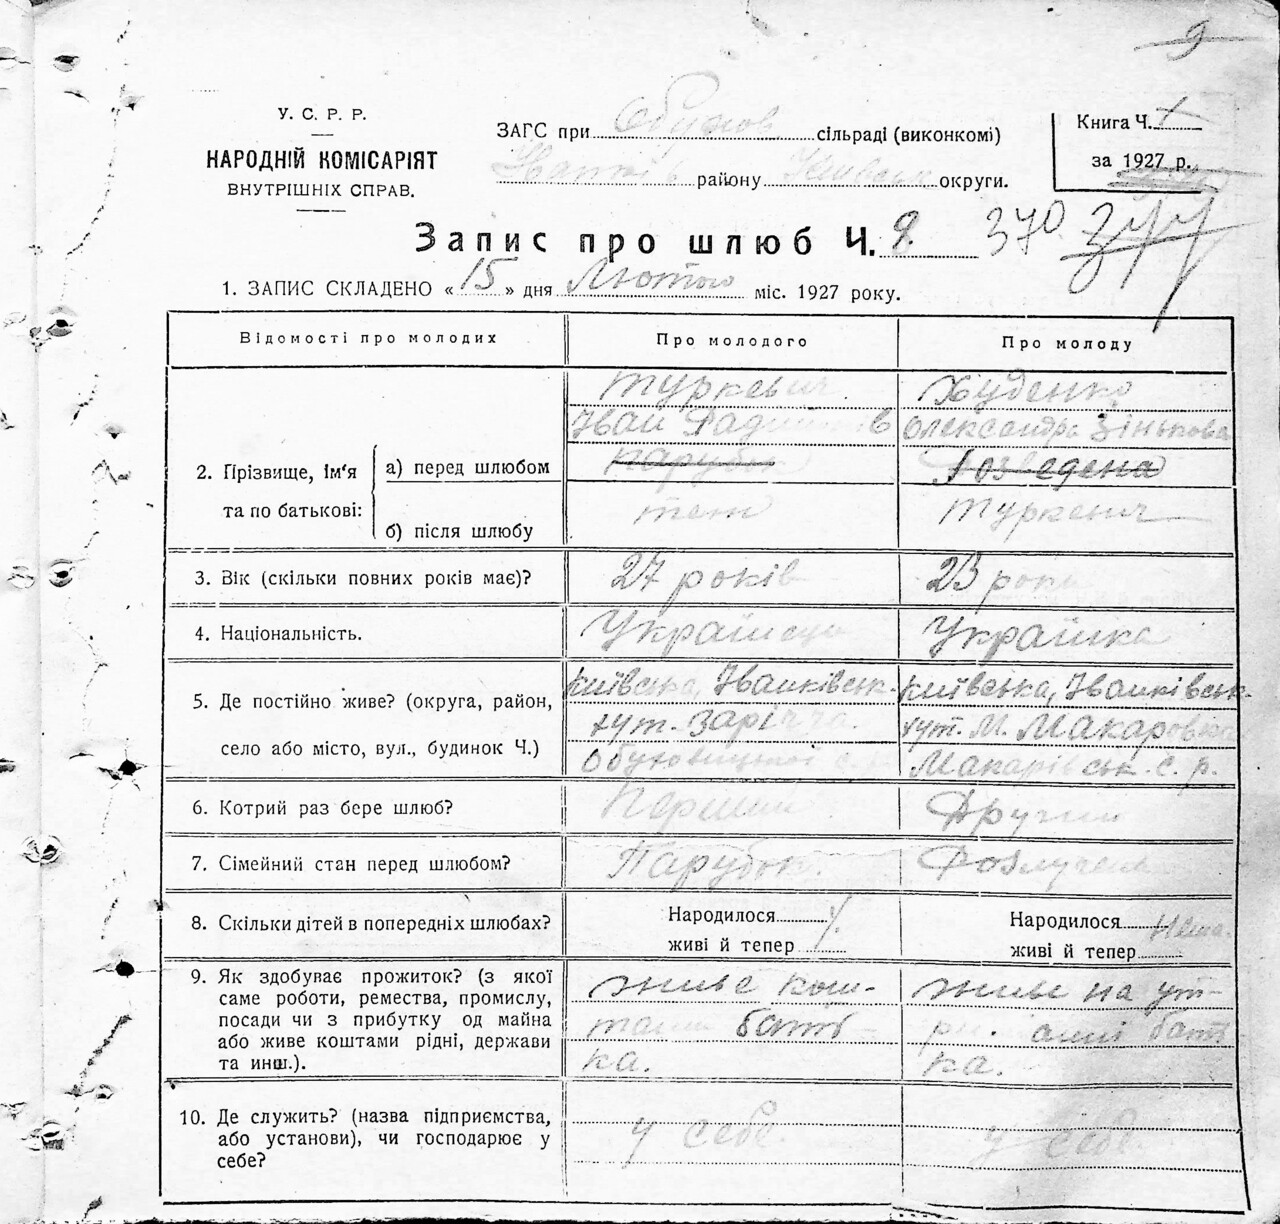 9
У. С. Р. Р.
НАРОДНІЙ КОМІСАРІЯТ
ВНУТРІШНІХ СПРАВ.
ЗАГС при сільраді (виконкомі)
району округи.
Книга Ч.
за 1927 р.
Запис про шлюб Ч. 9. 370
1. ЗАПИС СКЛАДЕНО « 15 » дня Лютого міс. 1927 року.
Відомості про молодих Про молодого Про молоду
2. Прізвище, Ім'я та по батькові:
а) перед шлюбом
Туркевич Худенко
Іван Олександра Зінькова
парубок Розведена
б) після шлюбу
теж Туркевич
3. Вік (скільки повних років має)? 27 років 23 роки
4. Національність. Українець Українка
5. Де постійно живе? (округа, район, Київська, Іванківськ. Київська, Іванківськ.
село або місто, вул., будинок Ч.) хут. Заріччя. хут. М. Макаровка
Макарівськ. с. р.
6. Котрий раз бере шлюб? Перший Другий
7. Сімейний стан перед шлюбом? Парубок. Розлучена
8. Скільки дітей в попередніх шлюбах? Народилося Народилося Нема.
живі й тепер живі й тепер
9. Як здобуває прожиток? (з якої живе кош- живе на ут-
саме роботи, ремества, промислу,
посади чи з прибутку од майна тами бать- анні бать
або живе коштами рідні, держави
та инш.). ка. ка.
10. Де служить? (назва підприємства,
або установи), чи господарює у у себе. у себе.
себе?